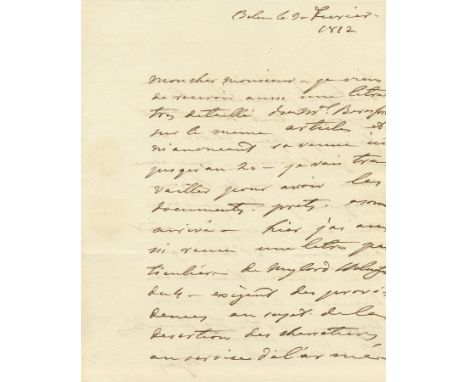 Belem le 9 Fevrier
1812
Mon cher monsieur - je viens
de recevoir aussi une letre
tres detaillé du Mal Beresfor
sur le meme article et
m'anoncent sa venue ici
jusqu'au 20 - je vais tra
vailler pour avoir les
documents prets a son
arrivée - hier j'ai aus
si recue une letre par
ticulière de Mylord
du 4 - exigent des provi
dences au sujet de la
desertion des charretiers
au service de l'armé